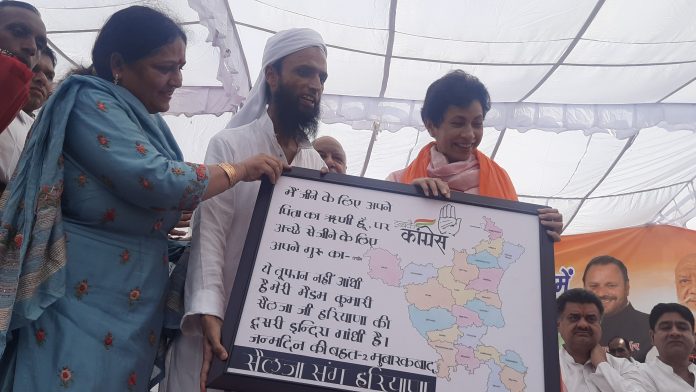 मैं जीने के लिए अपने
पिता का ऋणी हूँ, पर
अच्छे से जीने के लिए
अपने गुरु का-
कांग्रेस
ये तूफान नहीं आंधी
है मेरी मैडम कुमारी
सैलजा जी हरियाणा की
दूसरी इन्दिरा गांधी है।
जन्मदिन की बहुत-2 मुबारकबाद
सैलजा संग हरियाणा
में